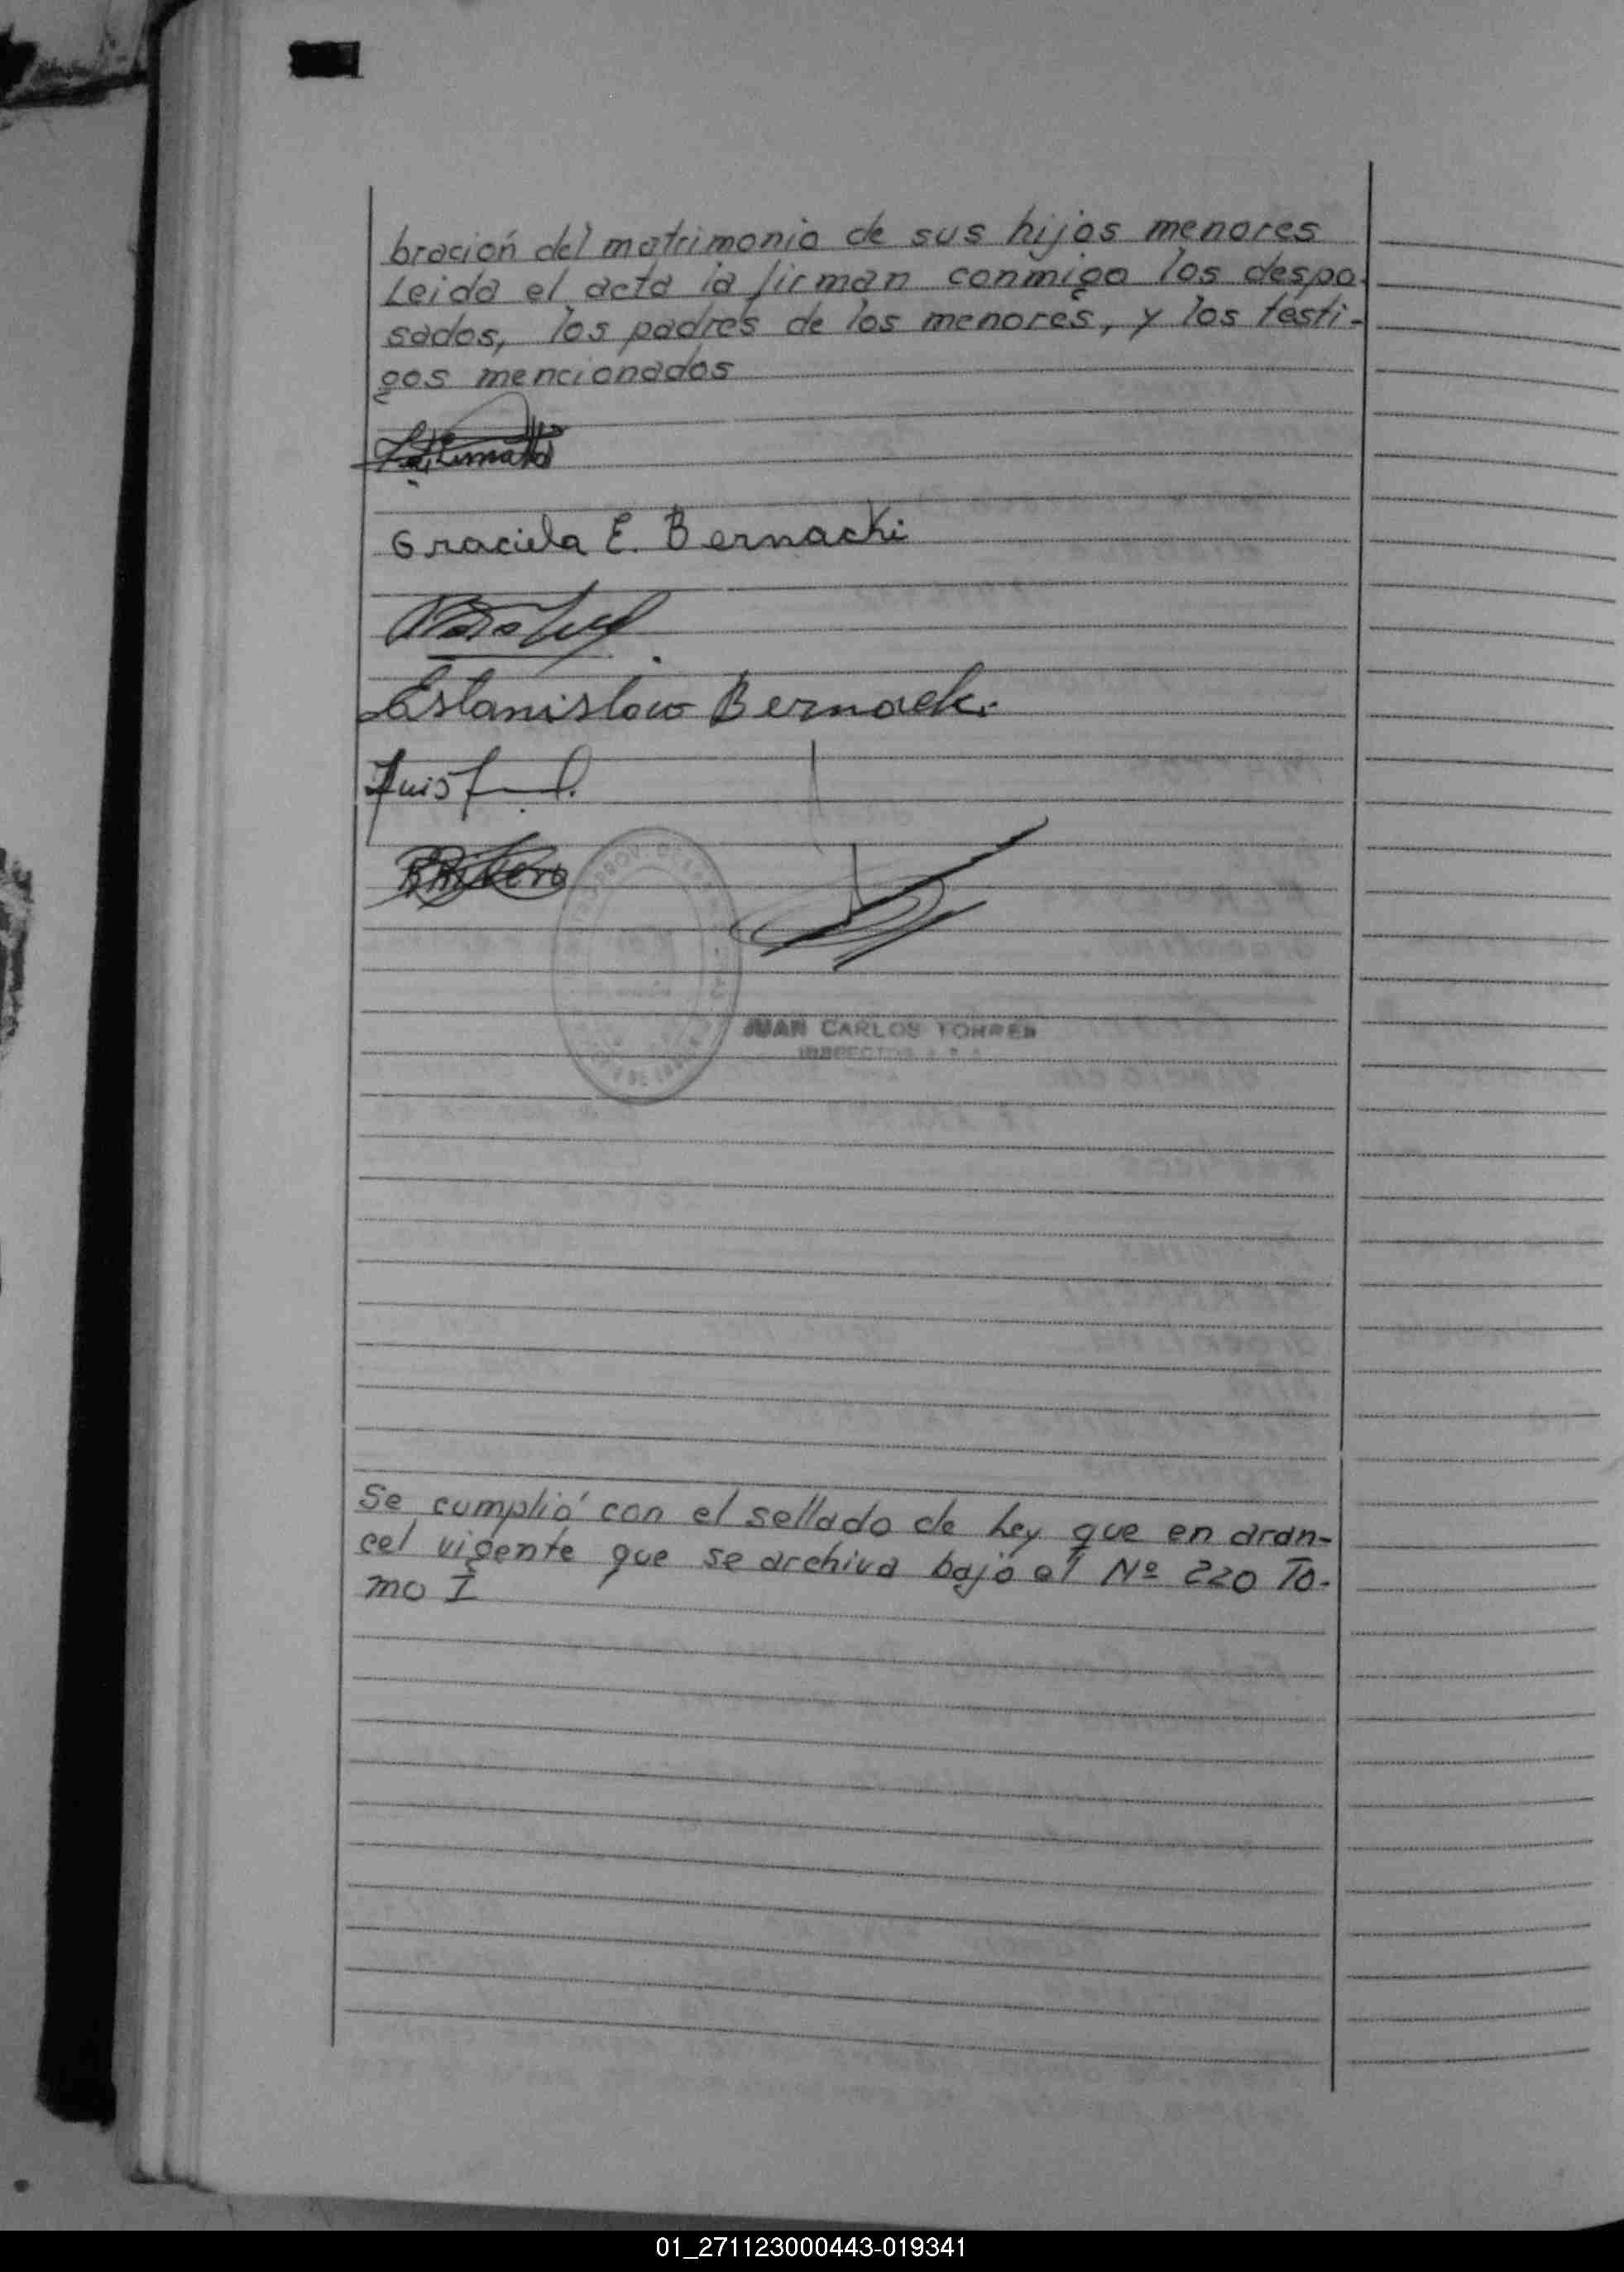 bración del matrimonio de sus hijos menores
Leida el acta la firman conmigo los despo-
sados, los padres de los menores, y los testi-
gos mencionados
Graciela E. Bernacki
Estanislao Bernacki
Luis
JUAN CARLOS TORRES
INSPECTOR
Se cumplió con el sellado de Ley que en aran-
cel vigente que se archiva bajo el Nº 220 To-
mo I
01_271123000443-019341